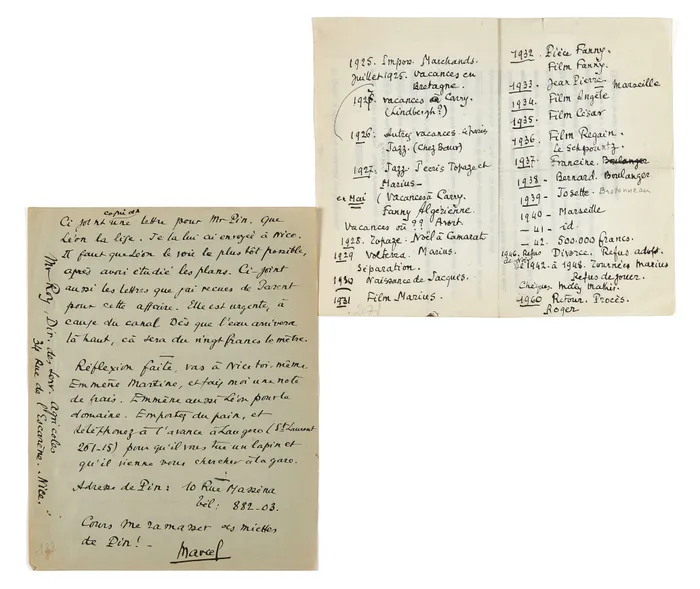 Ci joint une copie de lettre pour Mr Pin. Que
Léon la lise. Je la lui ai envoyé à Nice.
Il faut que Léon le voie le plus tôt possible,
après avoir étudié les plans. Ci joint
aussi les lettres que j'ai reçues de Parent
pour cette affaire. Elle est urgente, à
cause du canal. Dès que l'eau arrivera
là haut, çà sera du vingt francs le mètre.
Réflexion faite, vas à Nice toi-même.
Emmène Martine, et fais moi une note
de frais. Emmène aussi Léon pour le
domaine. Emportez du pain, et
téléphonez à l'avance à Laugero (St Laurent
261-15) pour qu'il vous tue un lapin et
qu'il vienne vous chercher à la gare.
Adresse de Pin : 10 Rue Masséna
tél : 882-03.
Cours me ramasser des miettes
de Pin ! -
Marcel
Mr Roy, Dir. des Serv. Agricoles
34 Rue de l'Escarène. Nice.
1925. Impor. Marchands.
Juillet 1925. Vacances en
Bretagne.
1927 vacances Carry.
(Lindbergh ?)
1926. Autres vacances à Paris
Jazz. (Chez Sœur)
1927. Jazz. J'écris Topaze et
Marius-
en Mai (Vacances à Carry.
Fanny Algérienne
Vacances où ?? Avort.
1928. Topaze. Noël à Camarat
1929 Volterra. Marius.
Séparation.
1930 Naissance de Jacques.
1931 Film Marius.
1932. Pièce Fanny.
Film Fanny.
1933. Jean Pierre Marseille
1934. Film Angèle
1935. Film César
1936. Film Regain.
Le Schpountz.
1937. Francine. Boulanger
1938 - Bernard. Boulanger
1939 - Josette. Bretonneau
1940 - Marseille
- 41 - id.
- 42. 500.000 francs.
1946. Refus Divorce. Refus adopt.
De 1942 à 1948. Tournées Marius
Refus de jouer.
Chèques
1960 Retour. Procès.
Roger